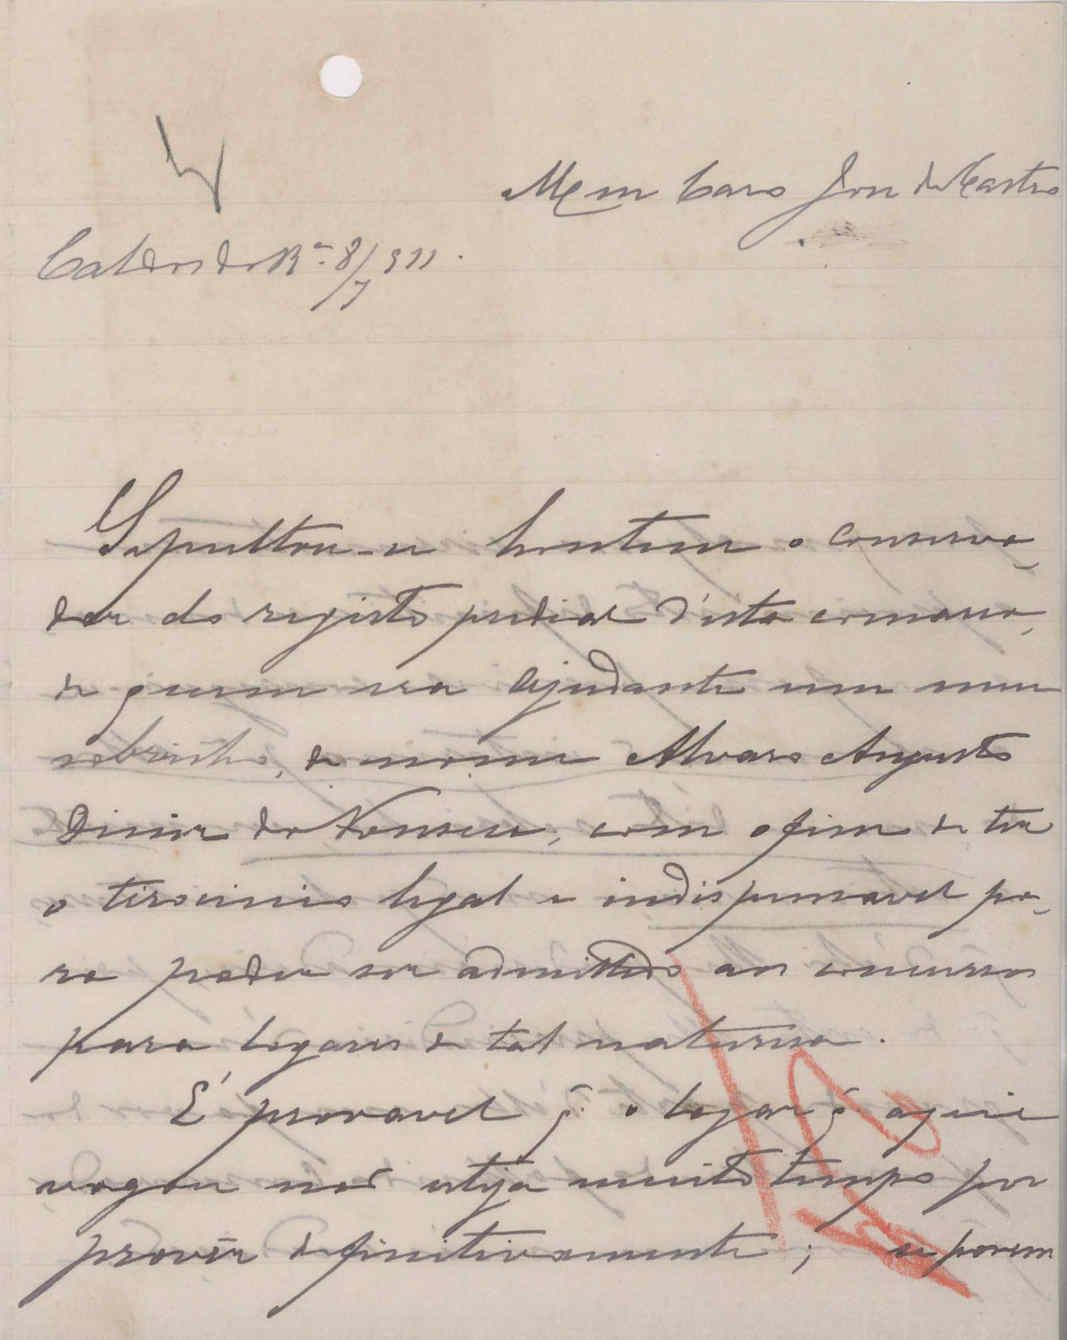 Meu Caro José de Castro
Caldas da R.ª 8/7 911.
Sepultou-se hontem o conserva-
dor do registo predial d'esta comarca,
de quem era ajudante um meu
sobrinho, de nome Alvaro Augusto
Diniz da Fonseca, com o fim de ter
o tirocinio legal e indispensavel pa-
ra poder ser admittido aos concursos
para logares de tal natureza.
É provavel q. o logar q. aqui
vagou não esteja muito tempo por
provêr definitivamente; se porem